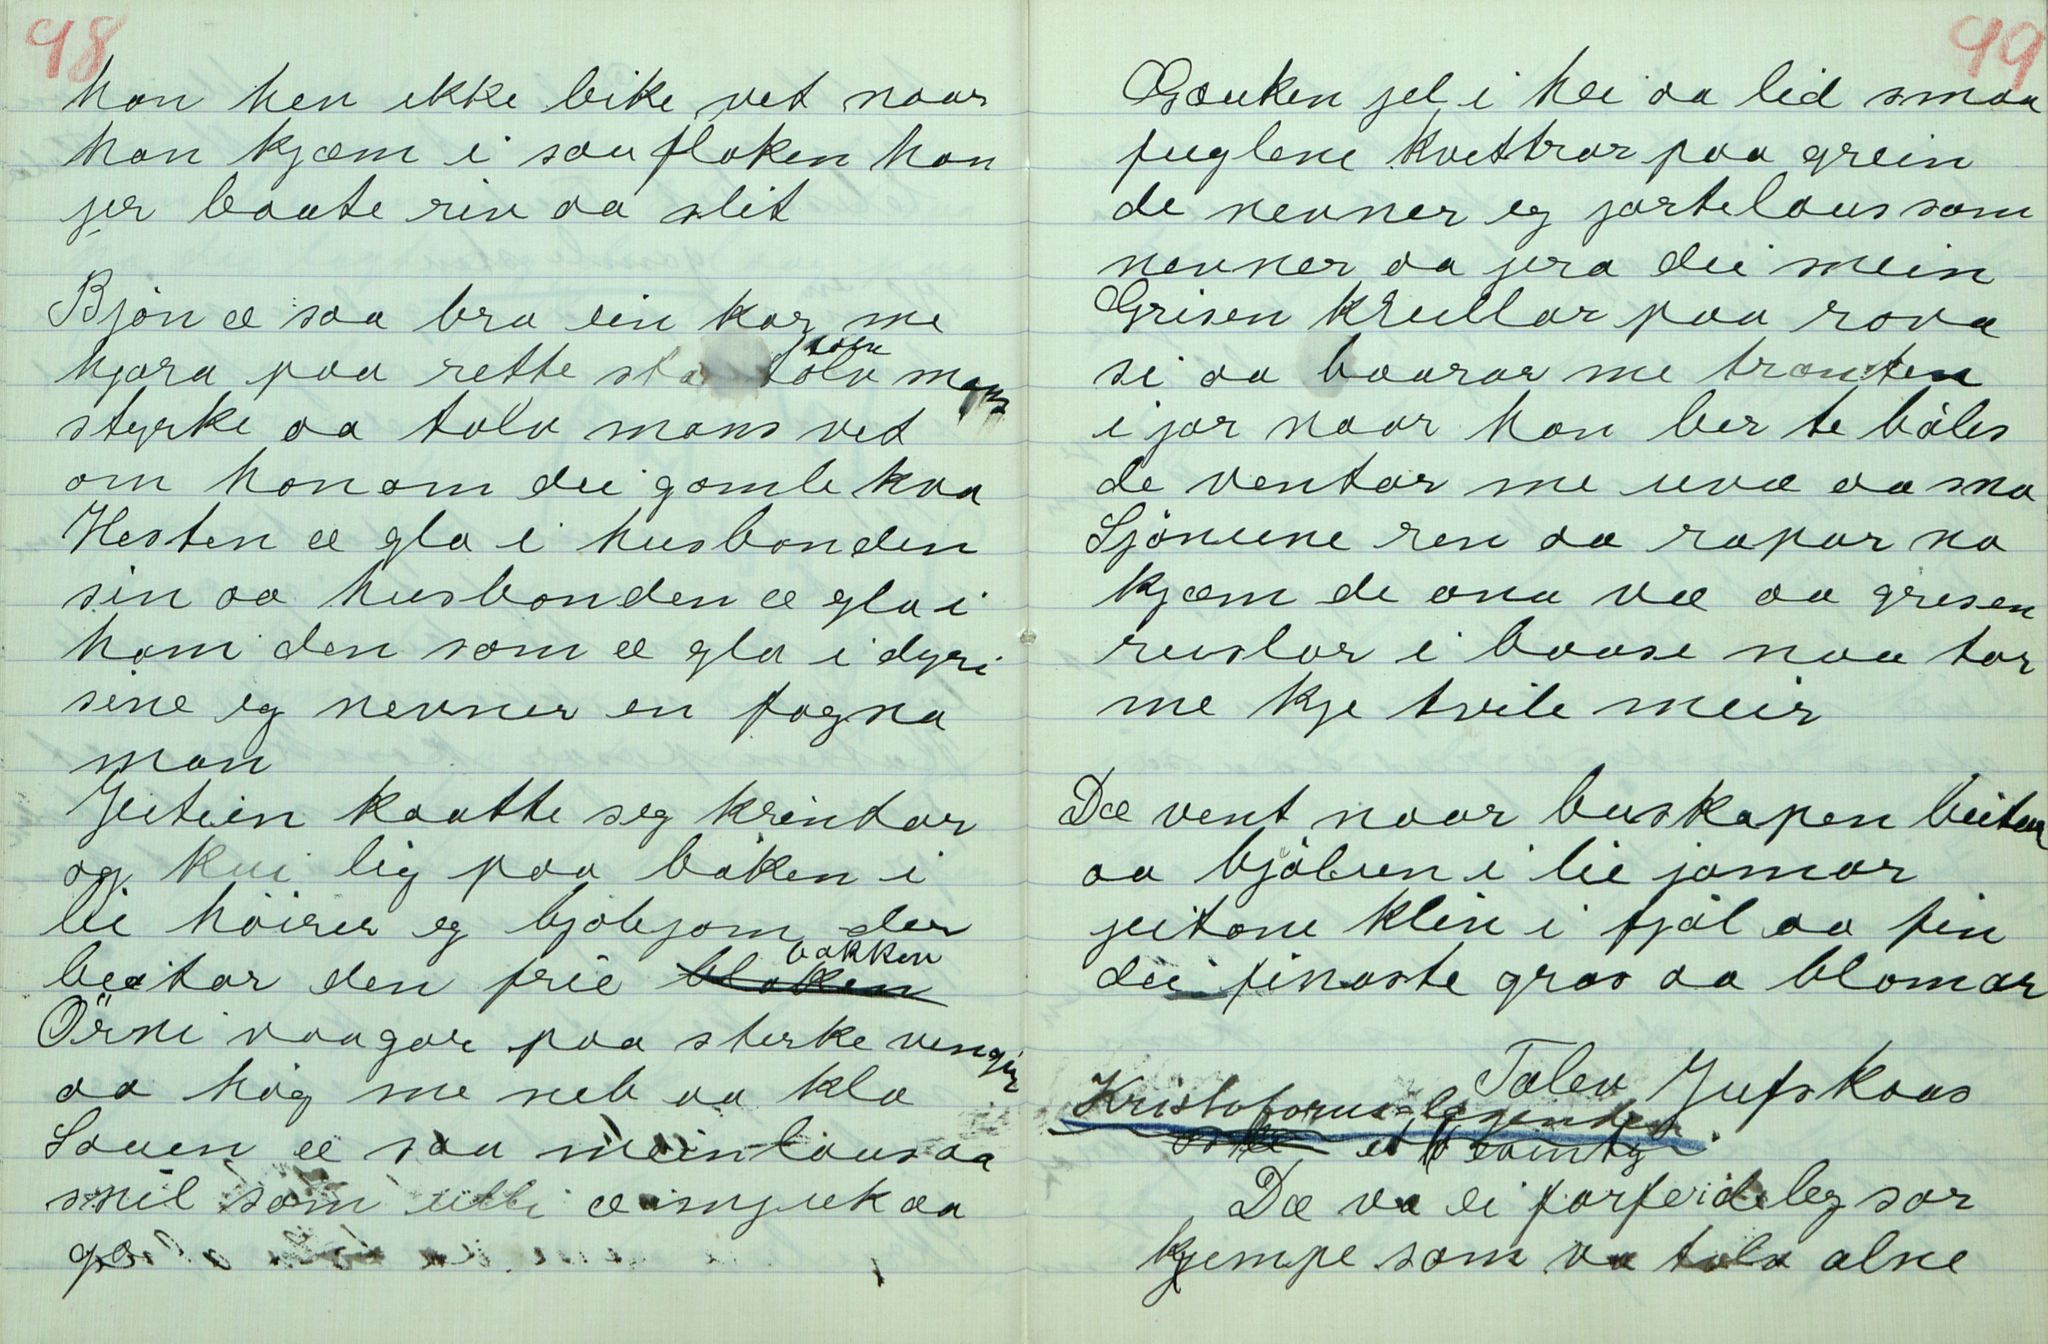 98
han hen ikke bike vet naar
han kjæm i sauflaken han
jer baate riv aa slit
Bjøn æ saa bra ein kar me
hjara paa rette sta tolv mans
styrke aa tolv mans vet
om honom dei gamle kva
Hesten æ gla i husbonden
sin aa husbonden æ gla i
ham den som æ gla i dyri
sine eg nevner en fagna
man
Jeitein kaatte seg krintar
og kui lig paa båken i
lii höirer eg bjølgjom der
beitar den frie bakken
Örni vaagar paa sterke vengir
aa høg me neb aa klo
Sauen æ saa meinlaus aa
snil som ulli æ mjuk aa
go
99
Gauken jel i hei aa lid smaa
fuglene kvittrar paa grein
de nevner eg jartelaus som
nevner aa jera dei mein
Grisen krullar paa rova
si aa baarar me tranten
i jar naar han ber te båles
de ventar me uvæ aa sno
Sjönune ren aa rapar no
kjæm de ana væ aa grisen
ruslar i baase naa tar
me kje tvile meir
Dæ vent naar buskapen beitar
aa bjølun i lie jomar
jeitane klin i fjøl aa fin
dei finaste gras aa blomar
Talev Jufskaas
Kristoforus legende
et eventy
Dæ va ei forfeideleg sor
kjempe som va tolv alne